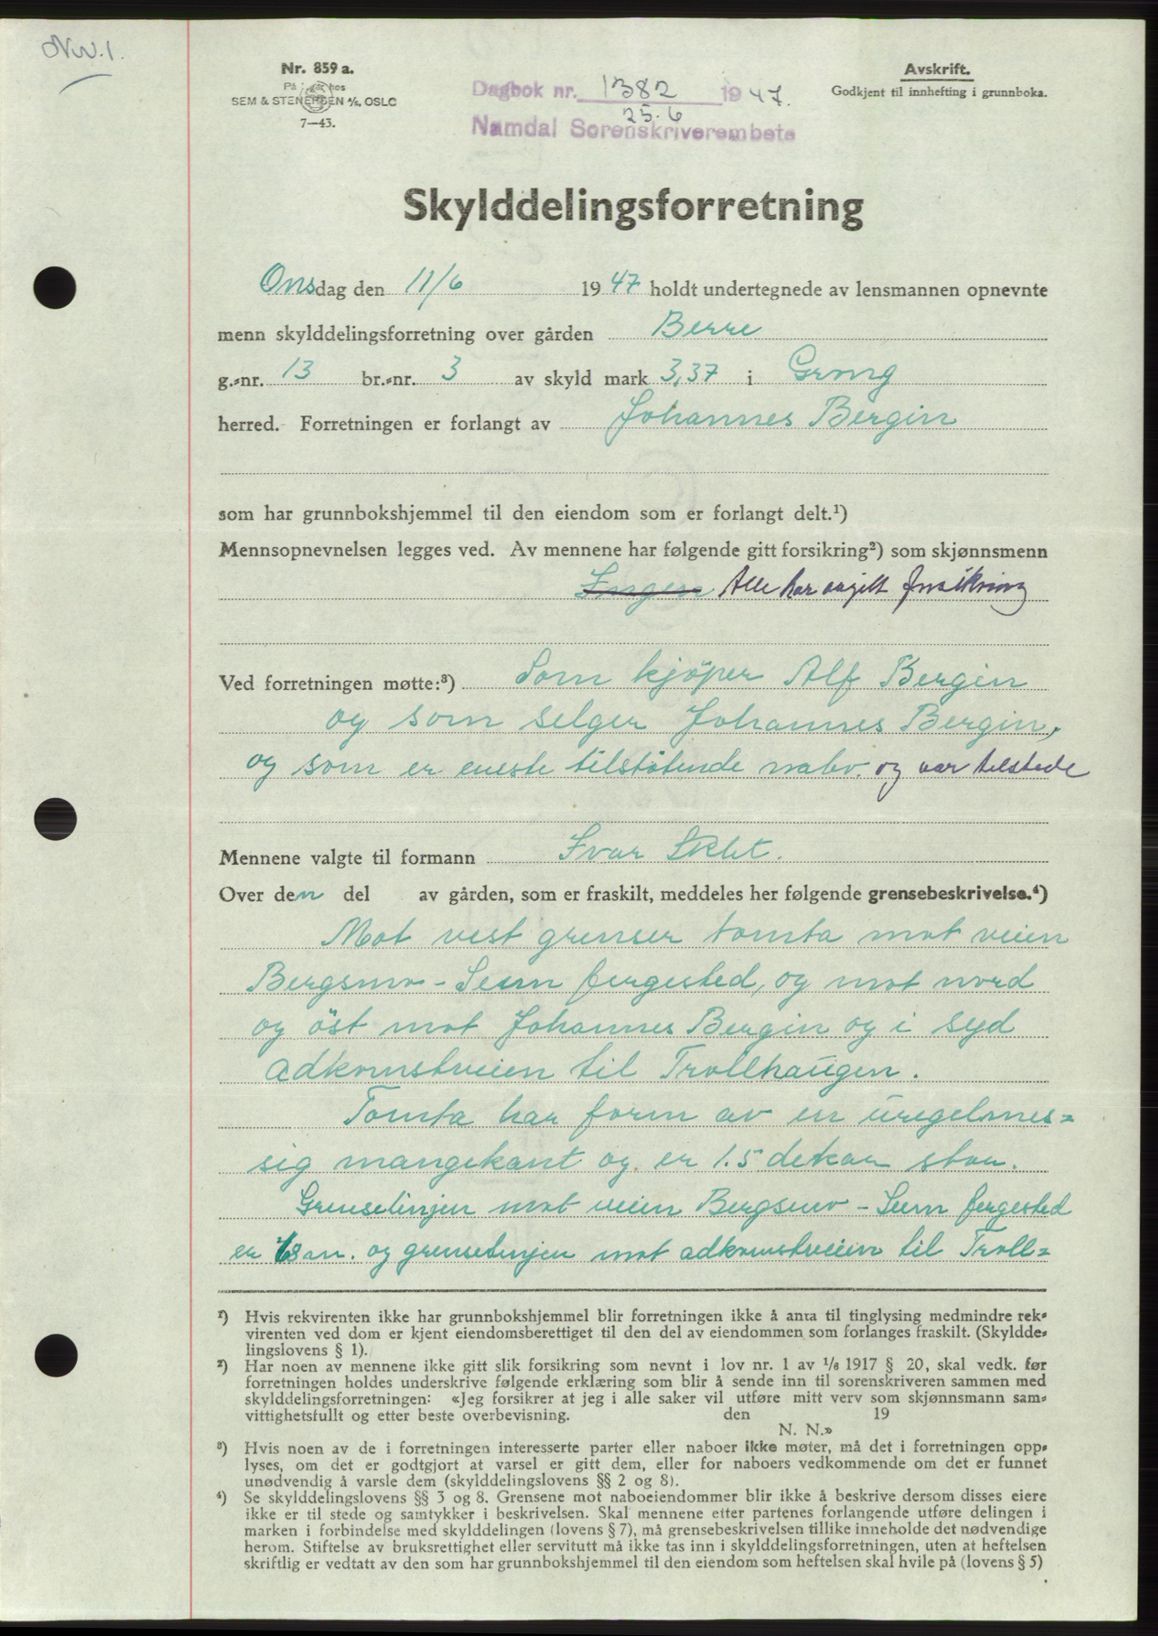 Nr. 859 a.
På lager hos
SEM & STENERSEN A/S, OSLO
7—43.
Dagbok nr. 1382 1947.
25.6
Namdal Sorenskriverembete
Avskrift.
Godkjent til innhefting i grunnboka.
Skylddelingsforretning
Onsdag den 11/6 1947 holdt undertegnede av lensmannen opnevnte
menn skylddelingsforretning over gården Berre
g.-nr. 13 br.-nr. 3 av skyld mark 3,37 i Grong
herred. Forretningen er forlangt av Johannes Bergin
som har grunnbokshjemmel til den eiendom som er forlangt delt.¹)
Mennsopnevnelsen legges ved. Av mennene har følgende gitt forsikring²) som skjønnsmenn
Ingen Alle har avgitt forsikring
Ved forretningen møtte:³) Som kjöper Alf Bergin
og som selger Johannes Bergin,
og som er eneste tilstötende nabo. og var tilstede
Mennene valgte til formann Ivar
Over den del av gården, som er fraskilt, meddeles her følgende grensebeskrivelse.⁴)
Mot vest grenser tomta mot veien
Bergsmo - Seem fergested, og mot nord
og öst mot Johannes Bergin og i syd
adkomstveien til Trollhaugen.
Tomta har form av en uregelmes=
sig mangekant og er 1.5 dekar stor.
Grenselinjen mot veien Bergsmo - Seem fergested
er og grenselinjen mot adkomstveien til Troll=
¹) Hvis rekvirenten ikke har grunnbokshjemmel blir forretningen ikke å anta til tinglysing medmindre rek-
virenten ved dom er kjent eiendomsberettiget til den del av eiendommen som forlanges fraskilt. (Skyldde-
lingslovens § 1).
²) Har noen av mennene ikke gitt slik forsikring som nevnt i lov nr. 1 av 1/6 1917 § 20, skal vedk. før
forretningen holdes underskrive følgende erklæring som blir å sende inn til sorenskriveren sammen med
skylddelingsforretningen: «Jeg forsikrer at jeg i alle saker vil utføre mitt verv som skjønnsmann sam-
vittighetsfullt og etter beste overbevisning. den 19
N. N.»
³) Hvis noen av de i forretningen interesserte parter eller naboer ikke møter, må det i forretningen opp-
lyses, om det er godtgjort at varsel er gitt dem, eller for naboers vedkommende om det er funnet
unødvendig å varsle dem (skylddelingslovens §§ 2 og 8).
⁴) Se skylddelingslovens §§ 3 og 8. Grensene mot naboeiendommer blir ikke å beskrive dersom disses eiere
ikke er til stede og samtykker i beskrivelsen. Skal mennene etter partenes forlangende utføre delingen i
marken i forbindelse med skylddelingen (lovens § 7), må grensebeskrivelsen tillike inneholde det nødvendige
herom. Stiftelse av bruksrettighet eller servitutt må ikke tas inn i skylddelingsforretningen, uten at heftelsen
skriftlig er vedtatt av den som har grunnbokshjemmel til den eiendom som heftelsen skal hvile på (lovens § 5)